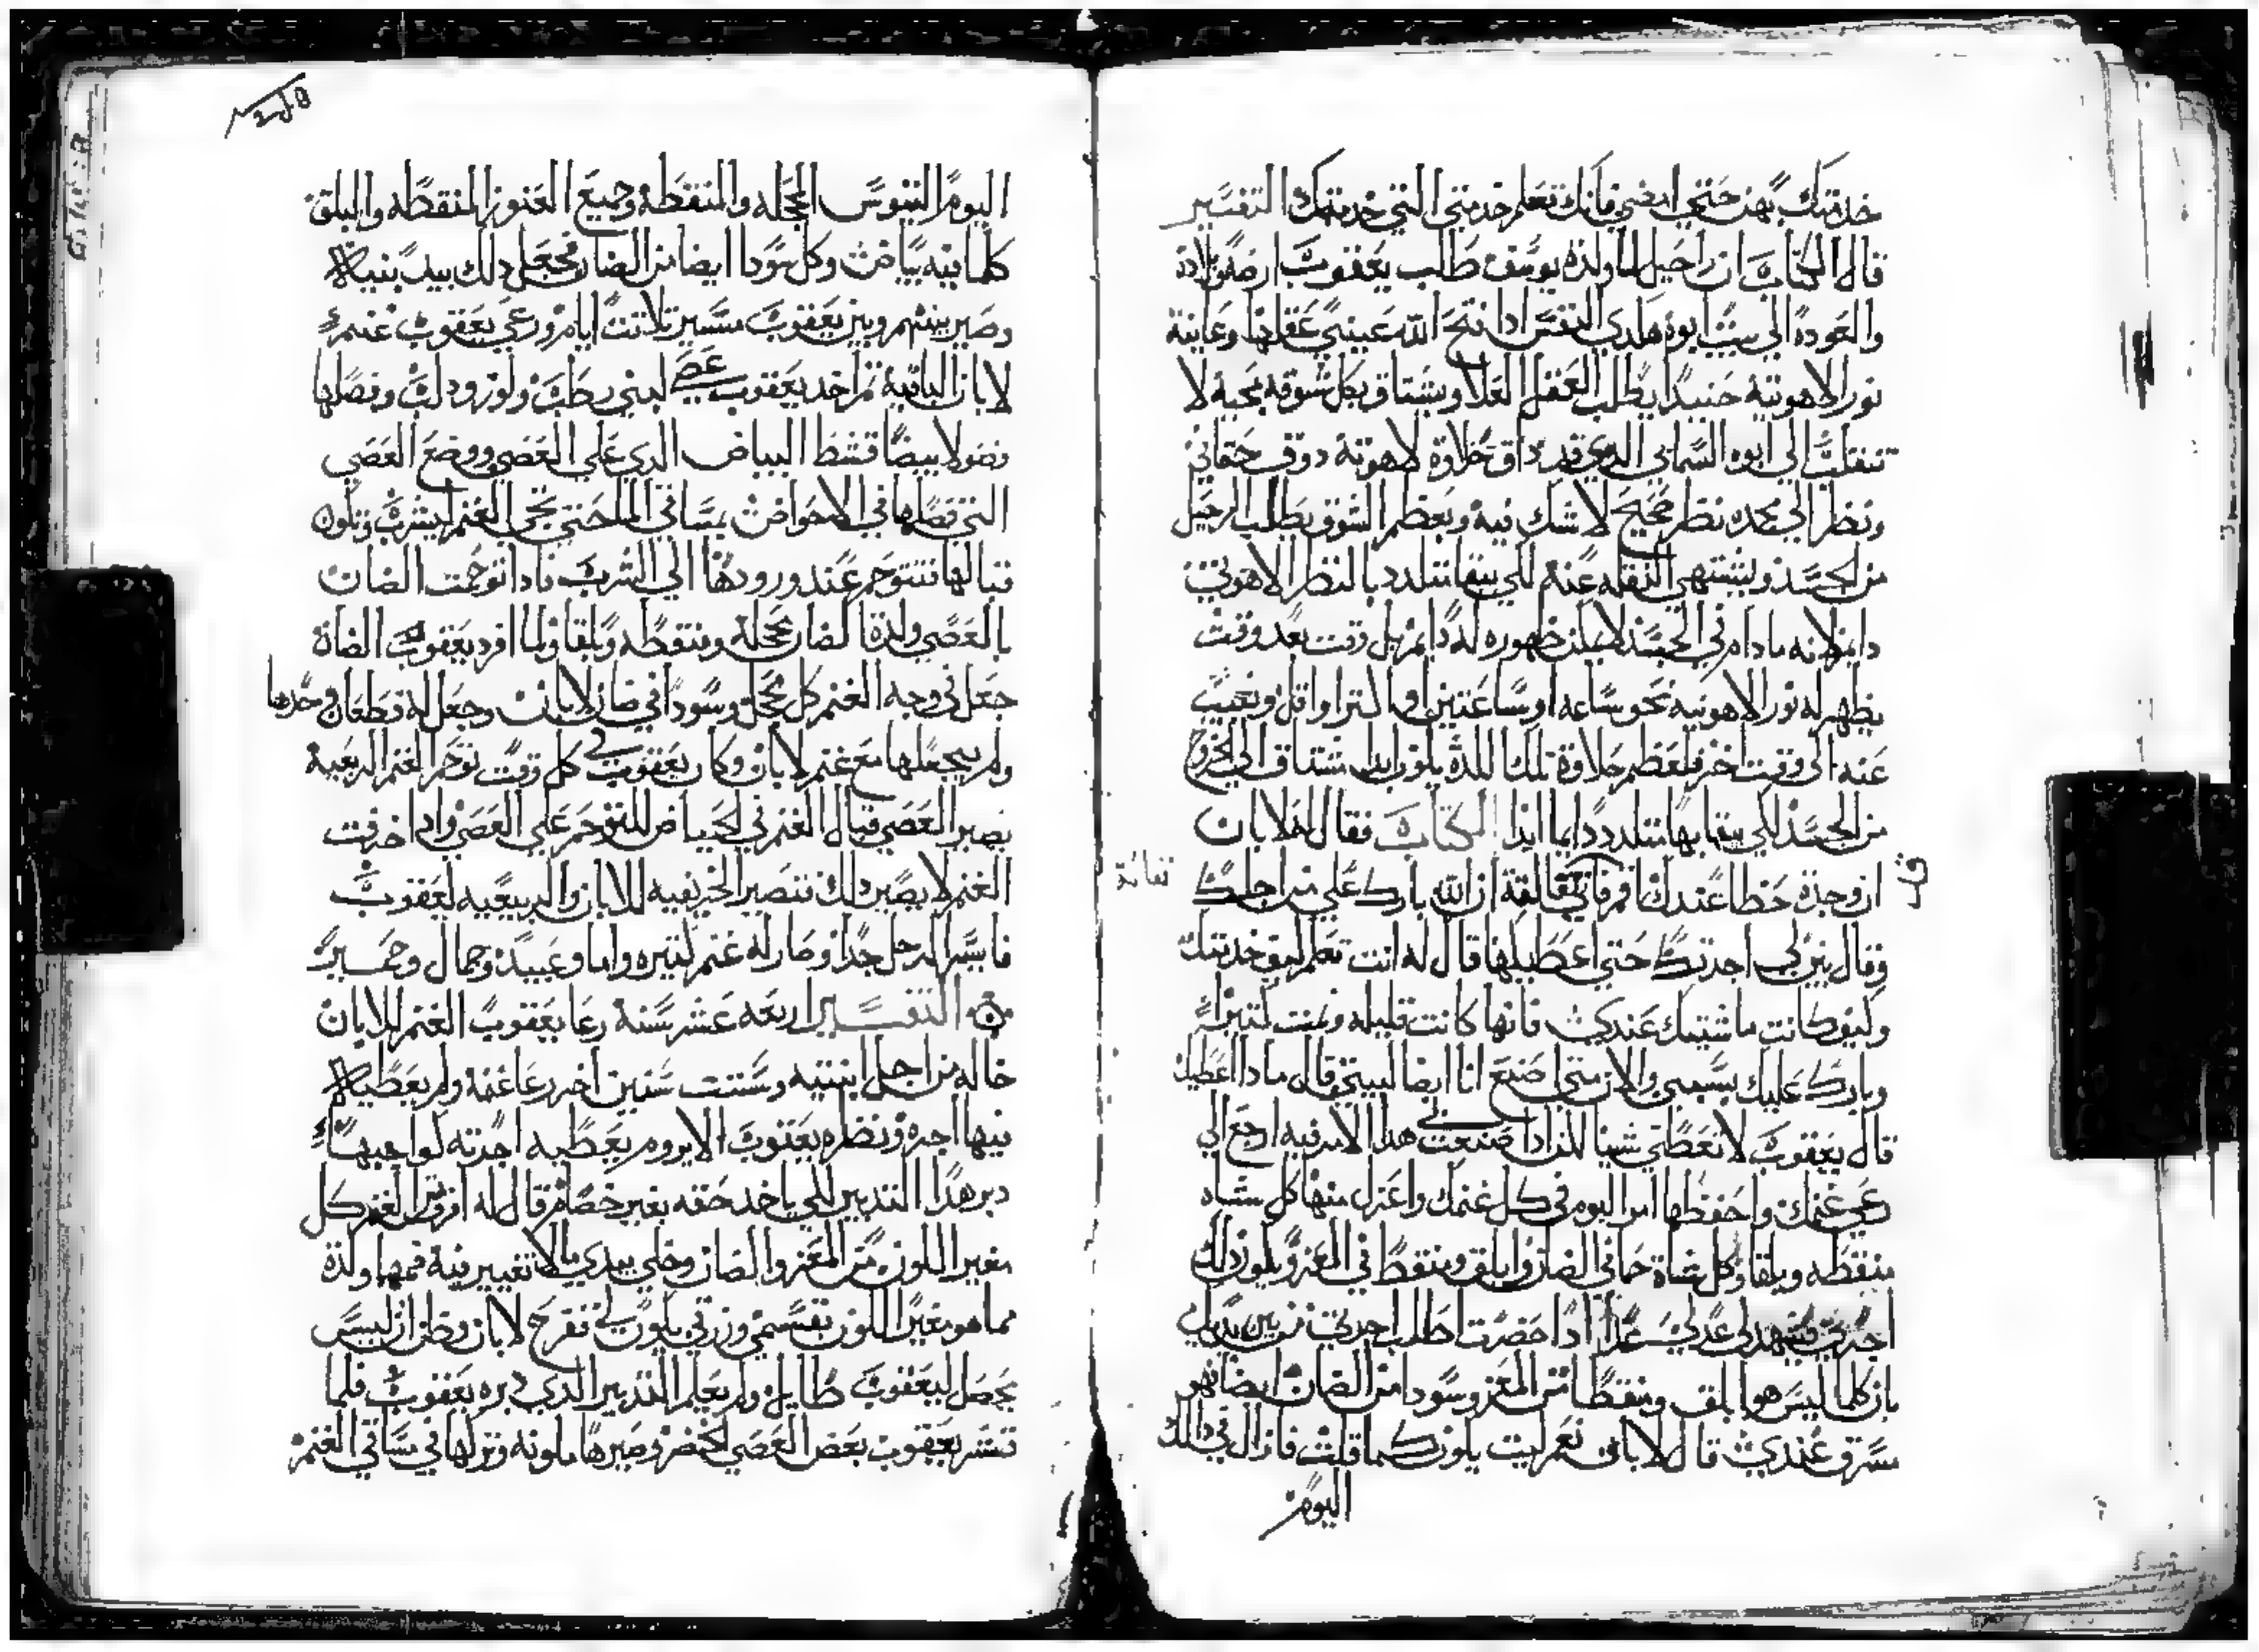 خدمتك بهن حتي امضي فانك تعلم خدمتي التي خدمتك التفسير
قال الكتاب ان راحيل لما ولدة يوسف طلب يعقوب ارضه وبلاده
والعوده الي بيت ابوه هكدي النفس ادا فتح الله عيني عقلها وعاينة
نور الاهوتية حنيدا يطلب العقل العلا ويشتاق بكل شوقه بمحبة لا
تنقلب الي ابوه السماي الدي قد داق حلاوة لاهوتة دوق حقاني
ونظر الي مجده نظر صحيح لا شك فية وبعظم الشوق يطلب الرحيل
من الجسد ويشتهي النقله عنه لكي يبقا متلدد بالنظر الاهوتي
دايم لانه مادام في الجسد لا يمكن ظهوره له دايم بل وقت بعد وقت
يظهر له نور الاهوتيه نحو ساعه او ساعتين او اكتر او اقل ويغيب
عنه الي وقت اخر فلعظم حلاوة تلك اللدة يكون ابدا مشتاق الي الخروج
من الجسد لكي يبقا بها متلدد دايما ابدا الكتاب فقال له لابان
ان وجدة حظا عندك اقم فاني تفالت ان الله بارك علي من اجلك
وقال بين لي اجرتك حتي اعطيكها قال له انت تعلم كيف خدمتك
وكيف كانت ماشيتك عندي فانها كانت قليله ونمت كتيرا
وبارك عليك بسببي والان متي اصنع انا ايضا لبيتي قال مادا اعطيك
قال يعقوب لا تعطي شيا لكن ادا صنعت لي هدا الامر فيه ارجع الي
رعي غنمك واحفظها امر اليوم في كل غنمك واعزل منها كل شاه
منقطه وبلقا وكل شاة حما في الضان وابلق ومنقط في المعز ويكون دلك
اجرتي فتشهد لي عدلي غدا ادا حضرت اطلب اجرتي من بين يديك
بان كلما ليس هو ابلق ومنقطا من المعز وسودا من الضان ايضا فهو
سرق عندي قال لابان نعم ليت يكون كما قلت فازال في دلك
اليوم
اليوم التيوس المحجله والمنقطه وجميع العنوز المنقطه والبلق
كلما فيه بياض وكل سودا ايضا من الضان فجعل دلك بيد بنيه
وصير بينهم وبين يعقوب مسير تلاتت ايام ورعي يعقوب غنم
لابان الباقية تم اخد يعقوب عصي لبني رطب ولوز ودلب وفصلها
فصولا بيضا قشط البياض الدي علي العصي ووضع العصي
التي فصلها في الاحواض بمساقي الما حتي تجي الغنم ليشرب وتكون
قبالها تتوحم عند ورودها الي الشرب فادا توحمت الضان
بالعصي ولدة الضان محجلة ومنقطه وبلقا ولما افرد يعقوب الضاة
جعل في وجه الغنم كل محجل وسودا في ضان لابان وجعل له قطعان وحدها
ولم يجعلها مع غنم لابان وكان يعقوب في كل وقت توحم الغنم الربعية
يصير العصي قبال الغنم في الحياض لتتوحم علي العصي وادا خرفت
الغنم لا يصير دلك فتصير الخريفيه للابان والربيعيه ليعقوب
فايسر الرجل جدا وصار له غنم كتيره واما وعبيد وجمال وحمير
التفسير اربعه عشر سنة رعا يعقوب الغنم للابان
خاله من اجل ابنتيه وستت سنين اخر رعا غنمة ولم يعطيه
فيها اجره ونظره يعقوب الا يروم يعطيه اجرته لواجبها
دبر هدا التدبير لكي ياخد حقه بغير خصام قال له افرز من الغنم كل
مغير اللون من المعز والضان وخلي بيدي مالا تغيير فية فمهما ولدة
مما هو مغير اللون بقسمي ورزقي يكون لي ففرح لابان وظن ان ليس
يحصل ليعقوب طايل ولم يعلم التدبير الدي دبره يعقوب فلما
قشر يعقوب بعض العصي الخضر وصيرها ملونه وتركها في مساقي الغنم